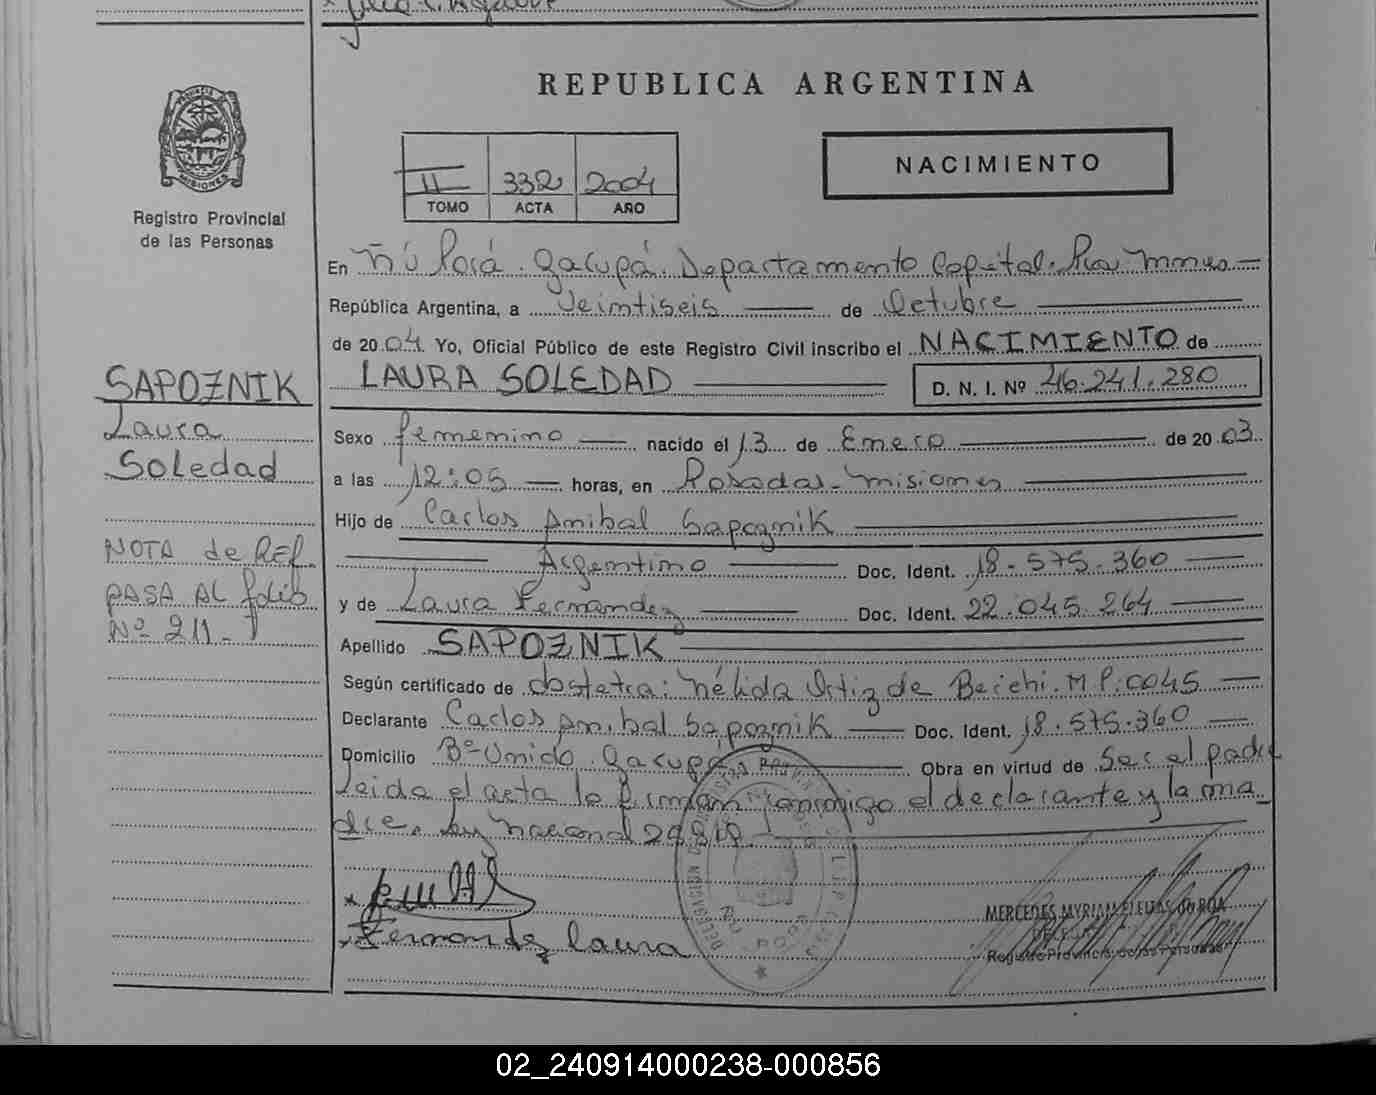 REPUBLICA ARGENTINA
PROVINCIA DE
MISIONES
Registro Provincial
de las Personas
II 332 2004
TOMO ACTA AÑO
NACIMIENTO
En Ñú Porá. Garupá. Departamento Capital. Pcia Mnes
República Argentina, a Veintiseis de Octubre
de 2004 Yo, Oficial Público de este Registro Civil inscribo el NACIMIENTO de
LAURA SOLEDAD D. N. I. Nº 46.241.280
SAPOZNIK
Laura
Soledad
Sexo femenino nacido el 13 de Enero de 2003
a las 12:05 horas, en Posadas - Misiones
Hijo de Carlos Anibal Sapoznik
Argentino Doc. Ident. 18.575.360
y de Laura Fernandez Doc. Ident. 22.045.264
NOTA de REF.
PASA AL folio
Nº 211.-
Apellido SAPOZNIK
Según certificado de obstetra: Nélida Ortiz de Beichi. M.P. 0045
Declarante Carlos Anibal Sapoznik Doc. Ident. 18.575.360
Domicilio Bº Unido. Garupá Obra en virtud de Ser el padre
Leida el acta la firman conmigo el declarante y la ma_
dre. Ley Nacional
Fernandez Laura
MERCEDES MYRIAM
Registro Provincial de las Personas
02_240914000238-000856